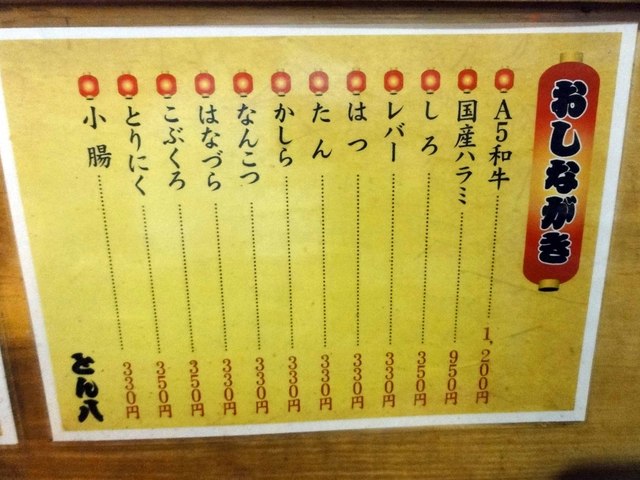 おしながき
A5和牛 1,200円
国産ハラミ 950円
しろ 350円
レバー 330円
はつ 330円
たん 330円
かしら 330円
なんこつ 330円
はなづら 330円
こぶくろ 350円
とりにく 350円
小腸 330円
とん八